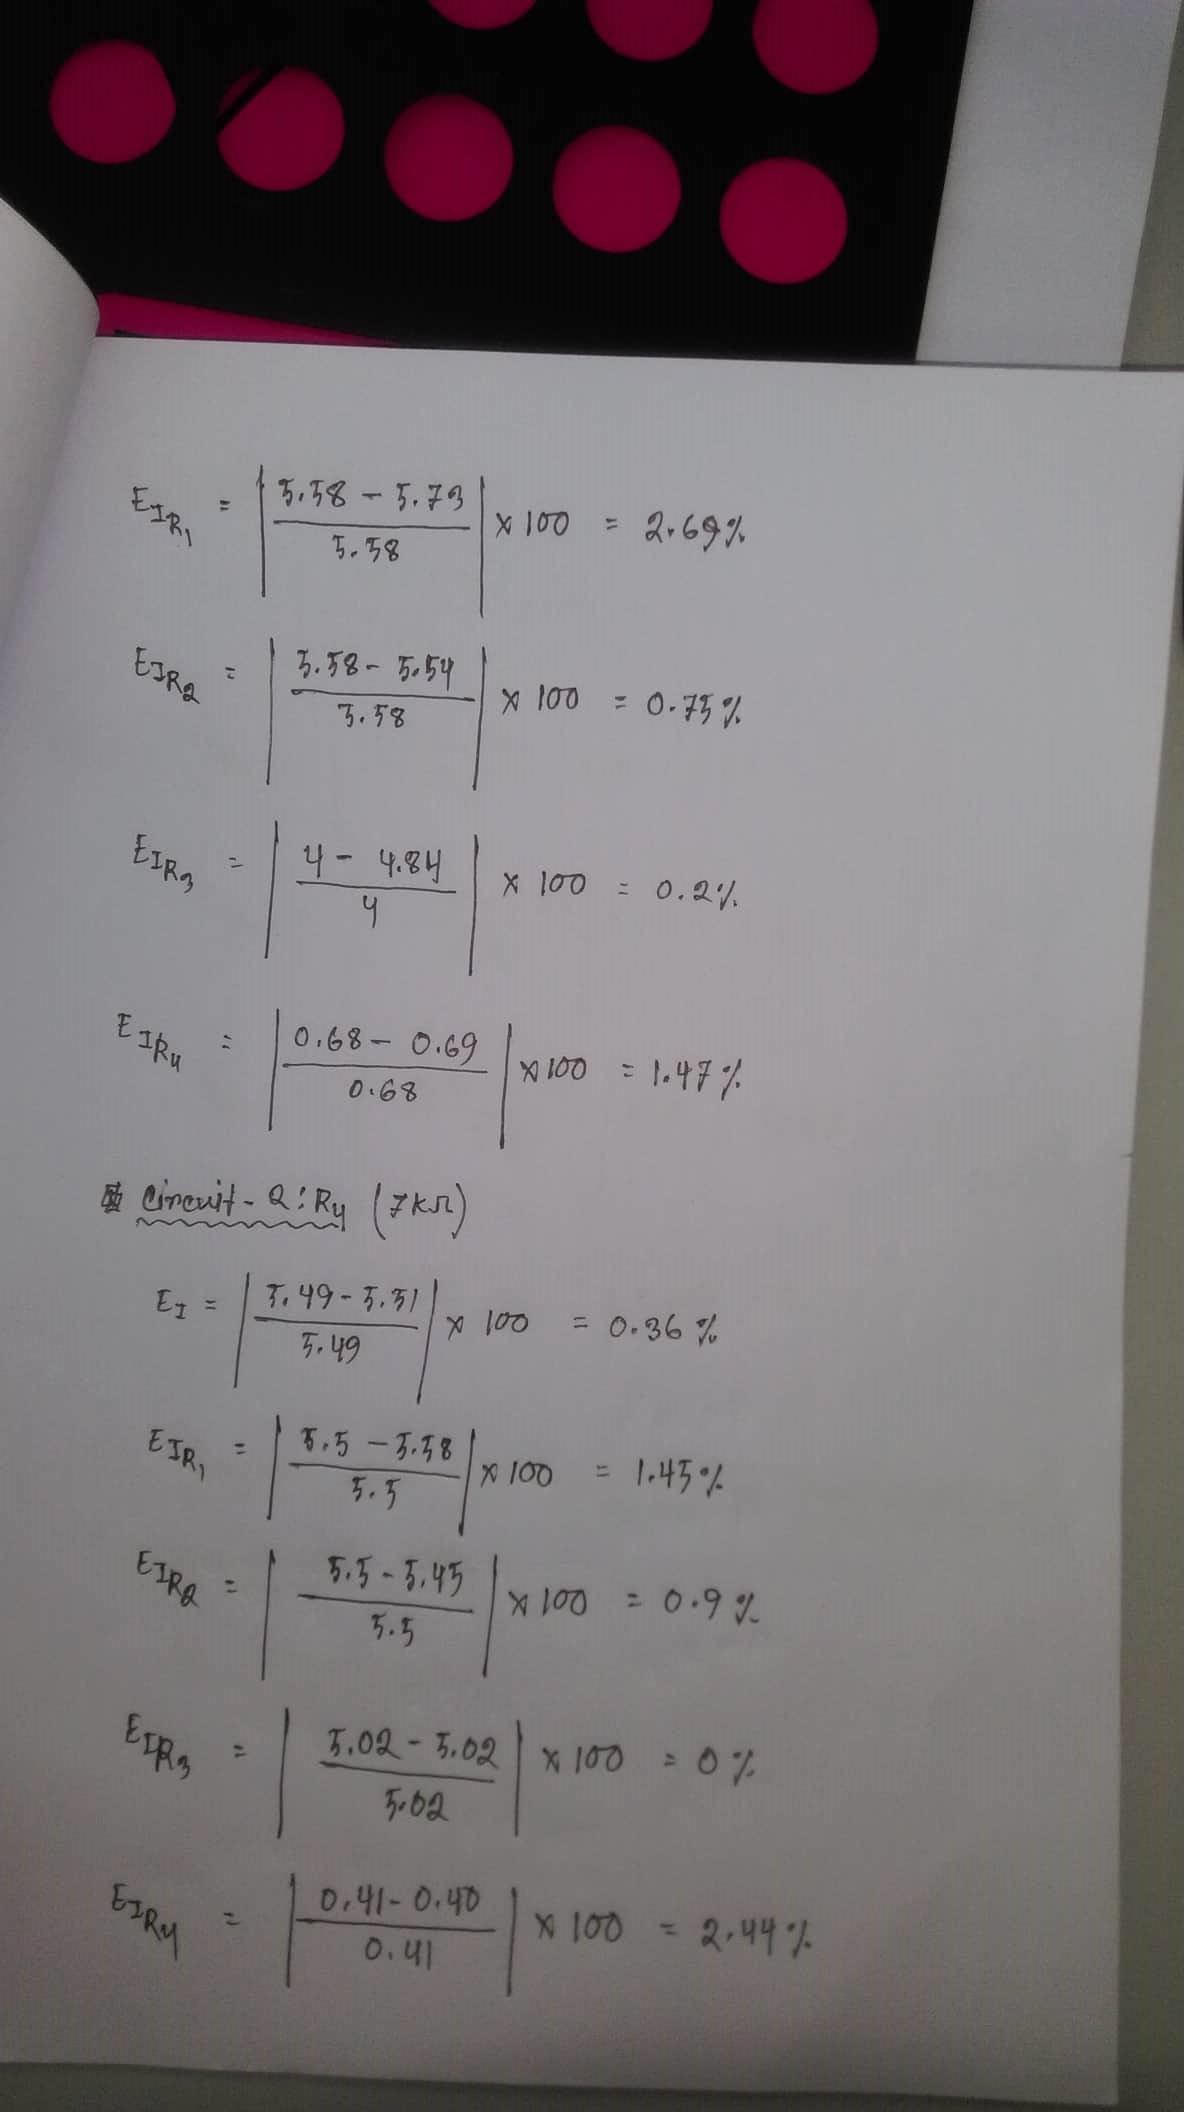 E_{IR_1} = | (5.58 - 5.73) / 5.58 | × 100 = 2.69%
E_{IR_2} = | (5.58 - 5.54) / 5.58 | × 100 = 0.75%
E_{IR_3} = | (4 - 4.84) / 4 | × 100 = 0.2%
E_{IR_4} = | (0.68 - 0.69) / 0.68 | × 100 = 1.47%
Circuit-2: R_4 (7kΩ)
E_I = | (5.49 - 5.51) / 5.49 | × 100 = 0.36%
E_{IR_1} = | (5.5 - 5.58) / 5.5 | × 100 = 1.45%
E_{IR_2} = | (5.5 - 5.45) / 5.5 | × 100 = 0.9%
E_{IR_3} = | (5.02 - 5.02) / 5.02 | × 100 = 0%
E_{IR_4} = | (0.41 - 0.40) / 0.41 | × 100 = 2.44%